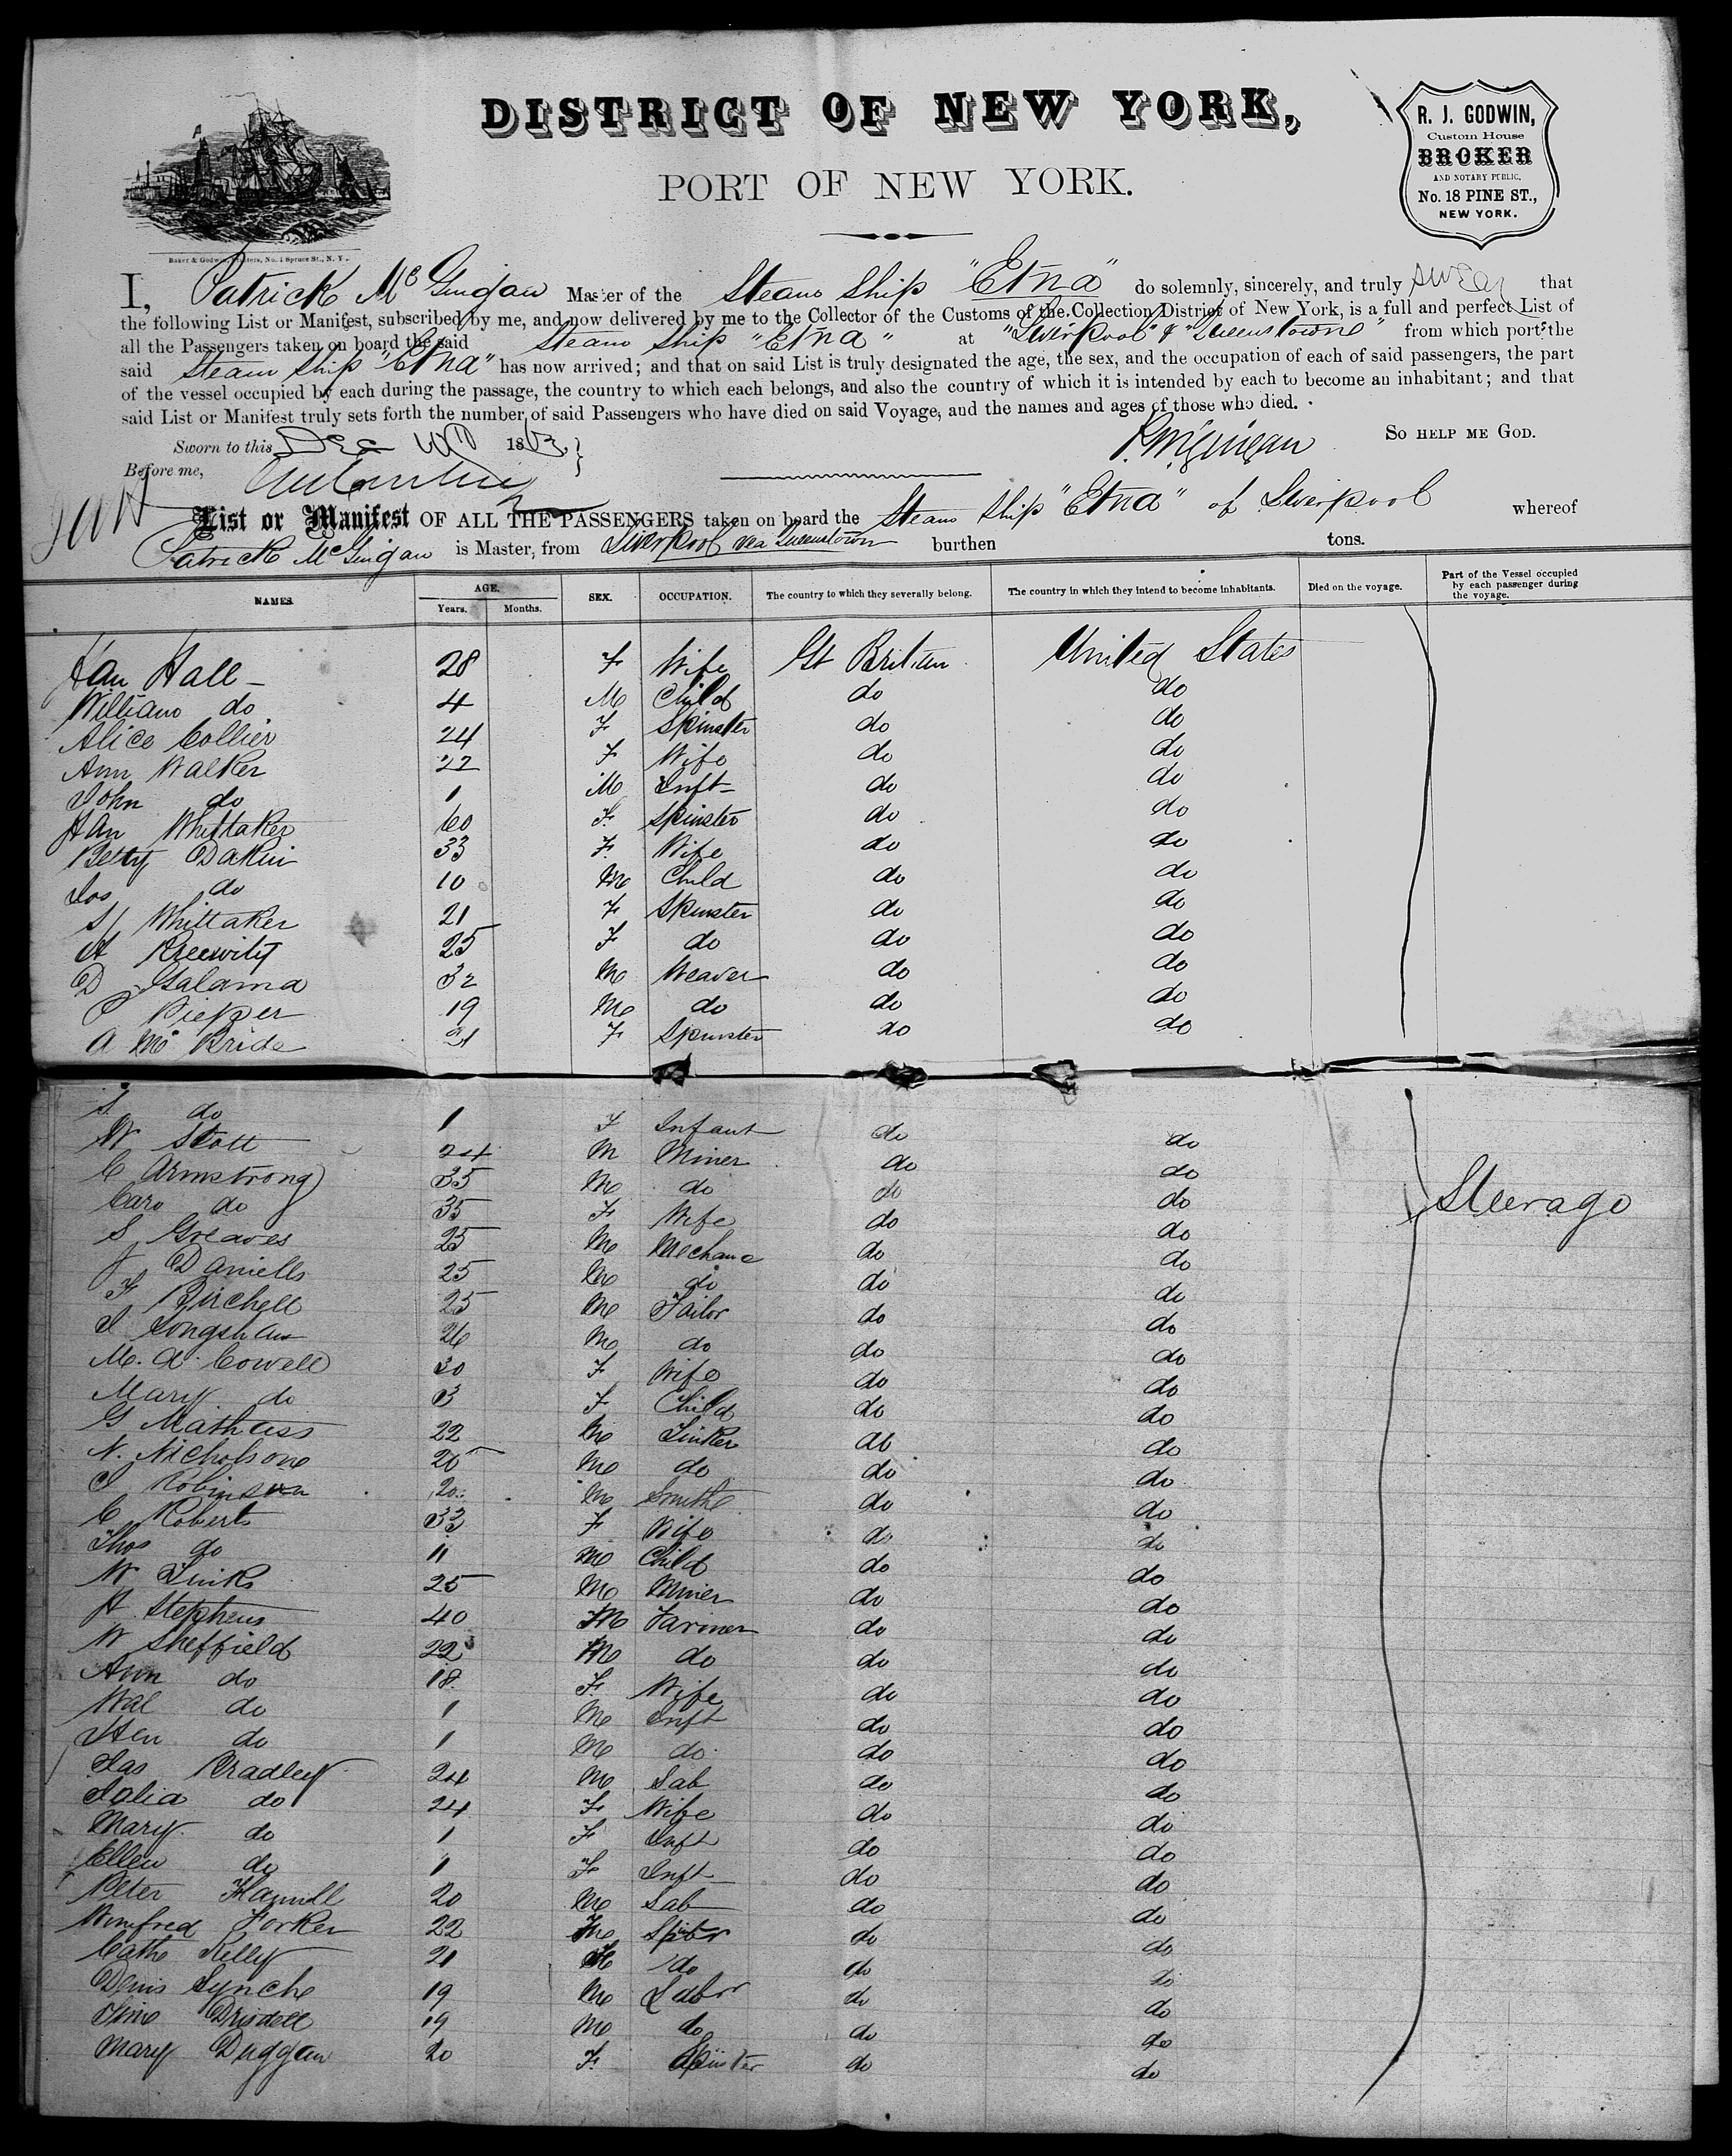 DISTRICT OF NEW YORK,
PORT OF NEW YORK.
R. J. GODWIN,
Custom House
BROKER
AND NOTARY PUBLIC,
No. 18 PINE ST.,
NEW YORK.
Baker & Godwin, Printers, No. 1 Spruce St., N. Y.
I, Patrick McGuigan Master of the Steam Ship "Etna" do solemnly, sincerely, and truly swear that
the following List or Manifest, subscribed by me, and now delivered by me to the Collector of the Customs of the Collection District of New York, is a full and perfect List of
all the Passengers taken on board the said Steam Ship "Etna" at "Liverpool" & "Queenstown" from which ports the
said Steam Ship "Etna" has now arrived; and that on said List is truly designated the age, the sex, and the occupation of each of said passengers, the part
of the vessel occupied by each during the passage, the country to which each belongs, and also the country of which it is intended by each to become an inhabitant; and that
said List or Manifest truly sets forth the number of said Passengers who have died on said Voyage, and the names and ages of those who died.
Sworn to this Dec 186
P. McGuigan SO HELP ME GOD.
Before me,
List or Manifest OF ALL THE PASSENGERS taken on board the Steam Ship "Etna" of Liverpool whereof
Patrick McGuigan is Master, from Liverpool via Queenstown burthen tons.
NAMES. AGE. Years. Months. SEX. OCCUPATION. The country to which they severally belong. The country in which they intend to become inhabitants. Died on the voyage. Part of the Vessel occupied by each passenger during the voyage.
Han Hall 28 F Wife Gt Britian United States
William do 4 M Child do do
Alice Collier 24 F Spinster do do
Ann Walker 22 F Wife do do
John do 1 M Inft do do
Han Whittaker 60 F Spinster do do
Betty Dakin 33 F Wife do do
Jos do 10 M Child do do
S Whittaker 21 F Spinster do do
A 25 F do do do
D Galama 32 M Weaver do do
P Piepper 19 M do do do
A McBride 21 F Spinster do do
S do 1 F Infant do do
W Stott 24 M Miner do do
C Armstrong 35 M do do do
Caro do 35 F Wife do do
Steerage
S Greaves 25 M Mechanc do do
J Daniells 25 M do do do
F Birchell 25 M Tailor do do
J Longshaw 26 M do do do
M. A. Cowell 30 F Wife do do
Mary do 3 F Child do do
G Mathess 22 M Tinker do do
N. Nicholsone 20 M do do do
J Robinson 20 M Smith do do
C Roberts 33 F Wife do do
Thos do 11 M Child do do
W Jinks 25 M Miner do do
H Stephens 40 M Farmer do do
W Sheffield 22 M do do do
Ann do 18 F Wife do do
Wal do 1 M Inft do do
Hen do 1 M do do do
Jas Bradley 24 M Lab do do
Julia do 24 F Wife do do
Mary do 1 F Inft do do
Ellen do 1 F Inft do do
Peter Hamill 20 M Lab do do
Winifred Forker 22 F Spstr do do
Cathe Kelly 21 F do do do
Denis Lynche 19 M Labor do do
Tim Drisdell 19 M do do do
Mary Duggan 20 F Spinster do do